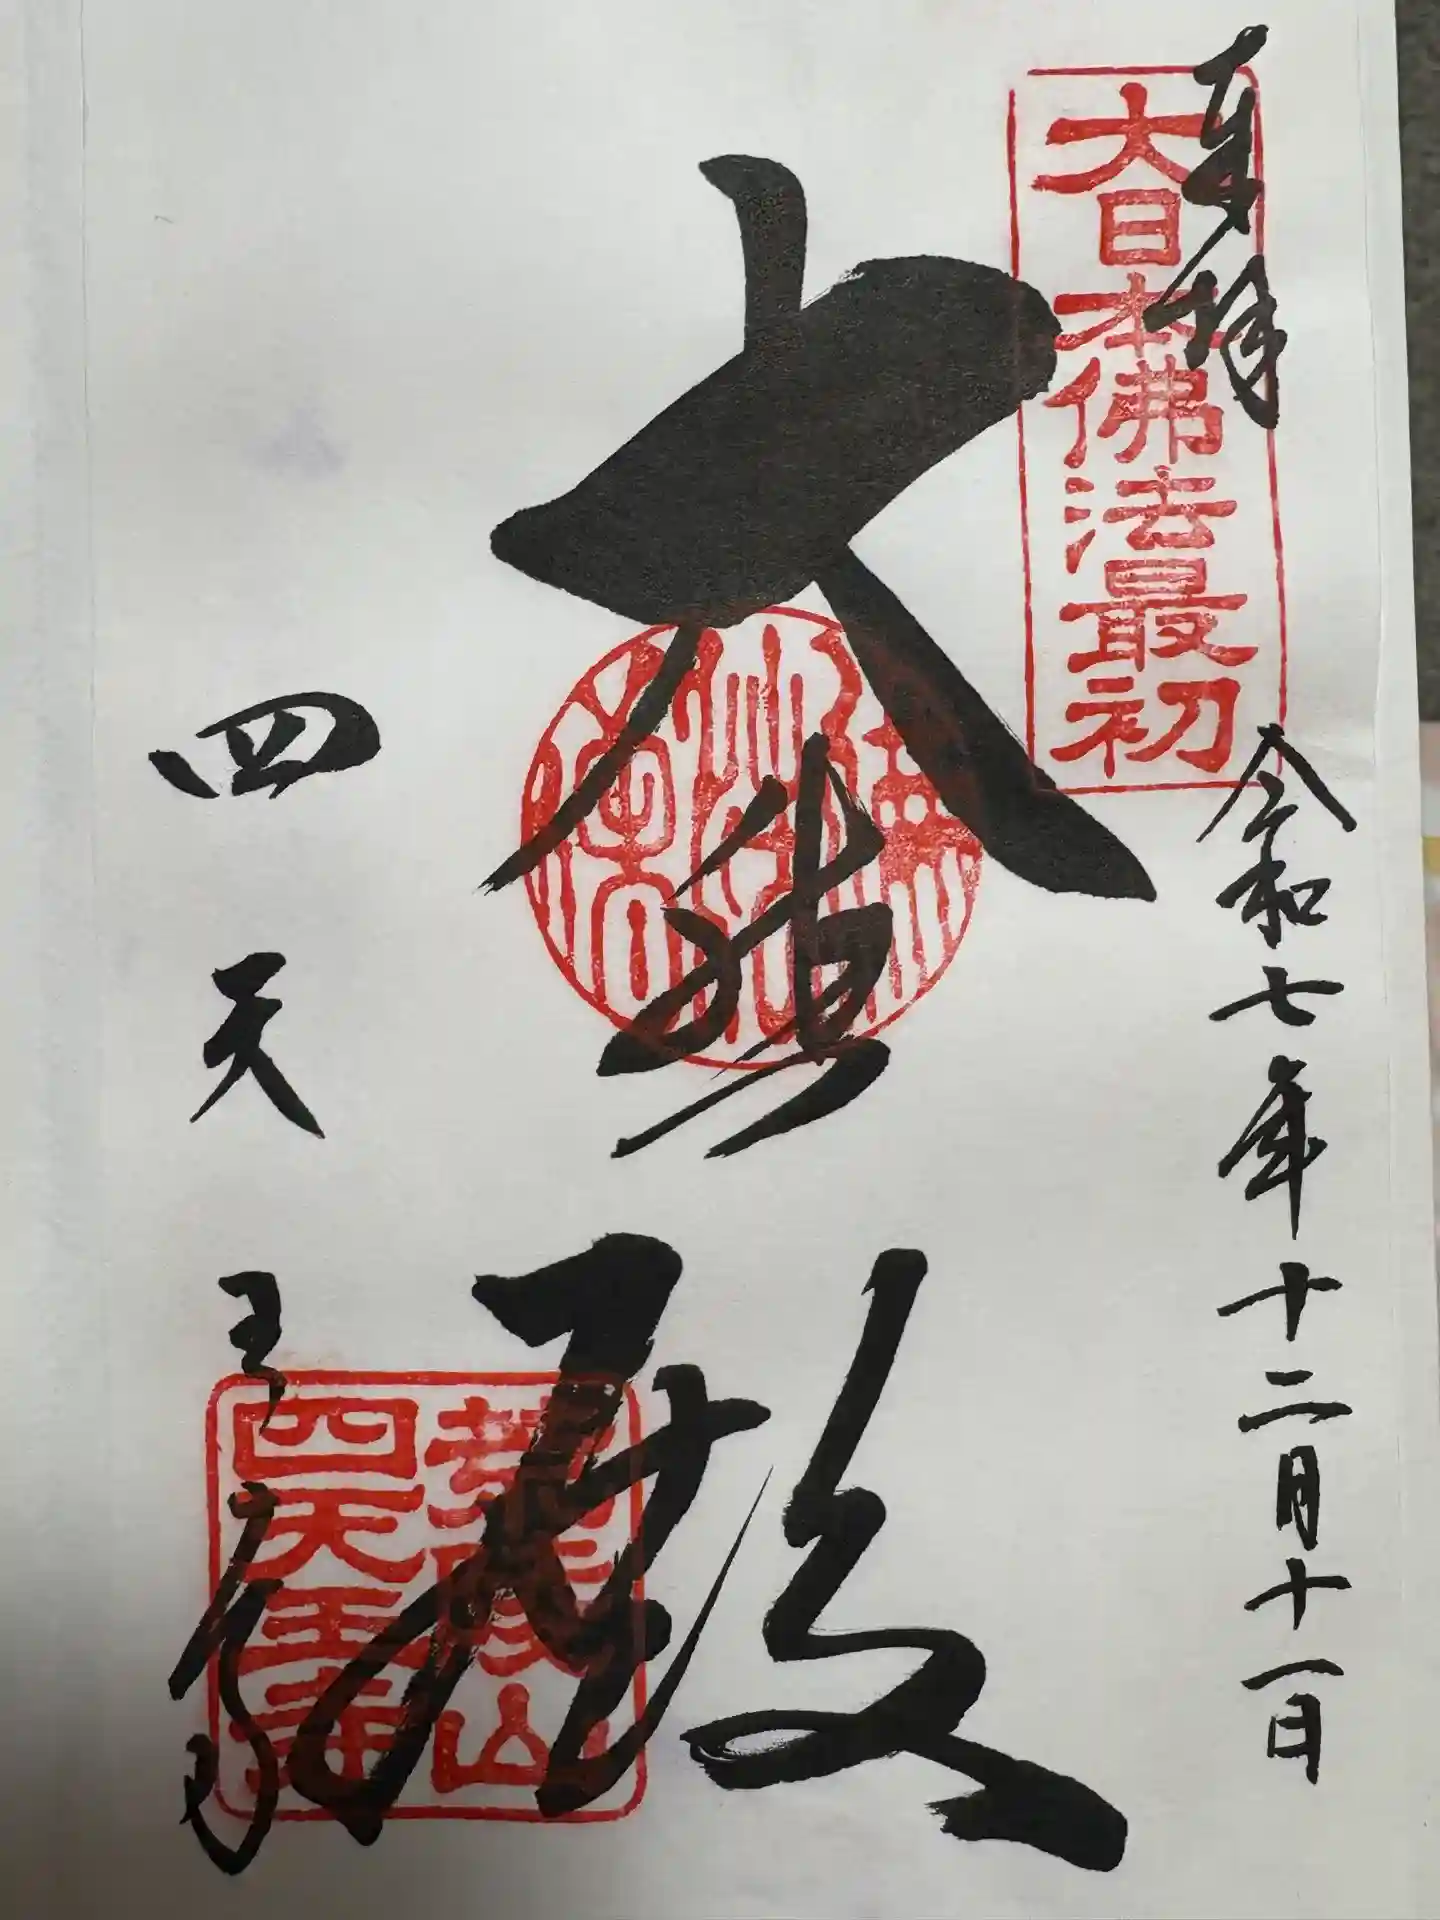 奉拝
大日本佛法最初
令和七年十二月十一日
大悲殿
荒陵山
四天王寺
四天王寺